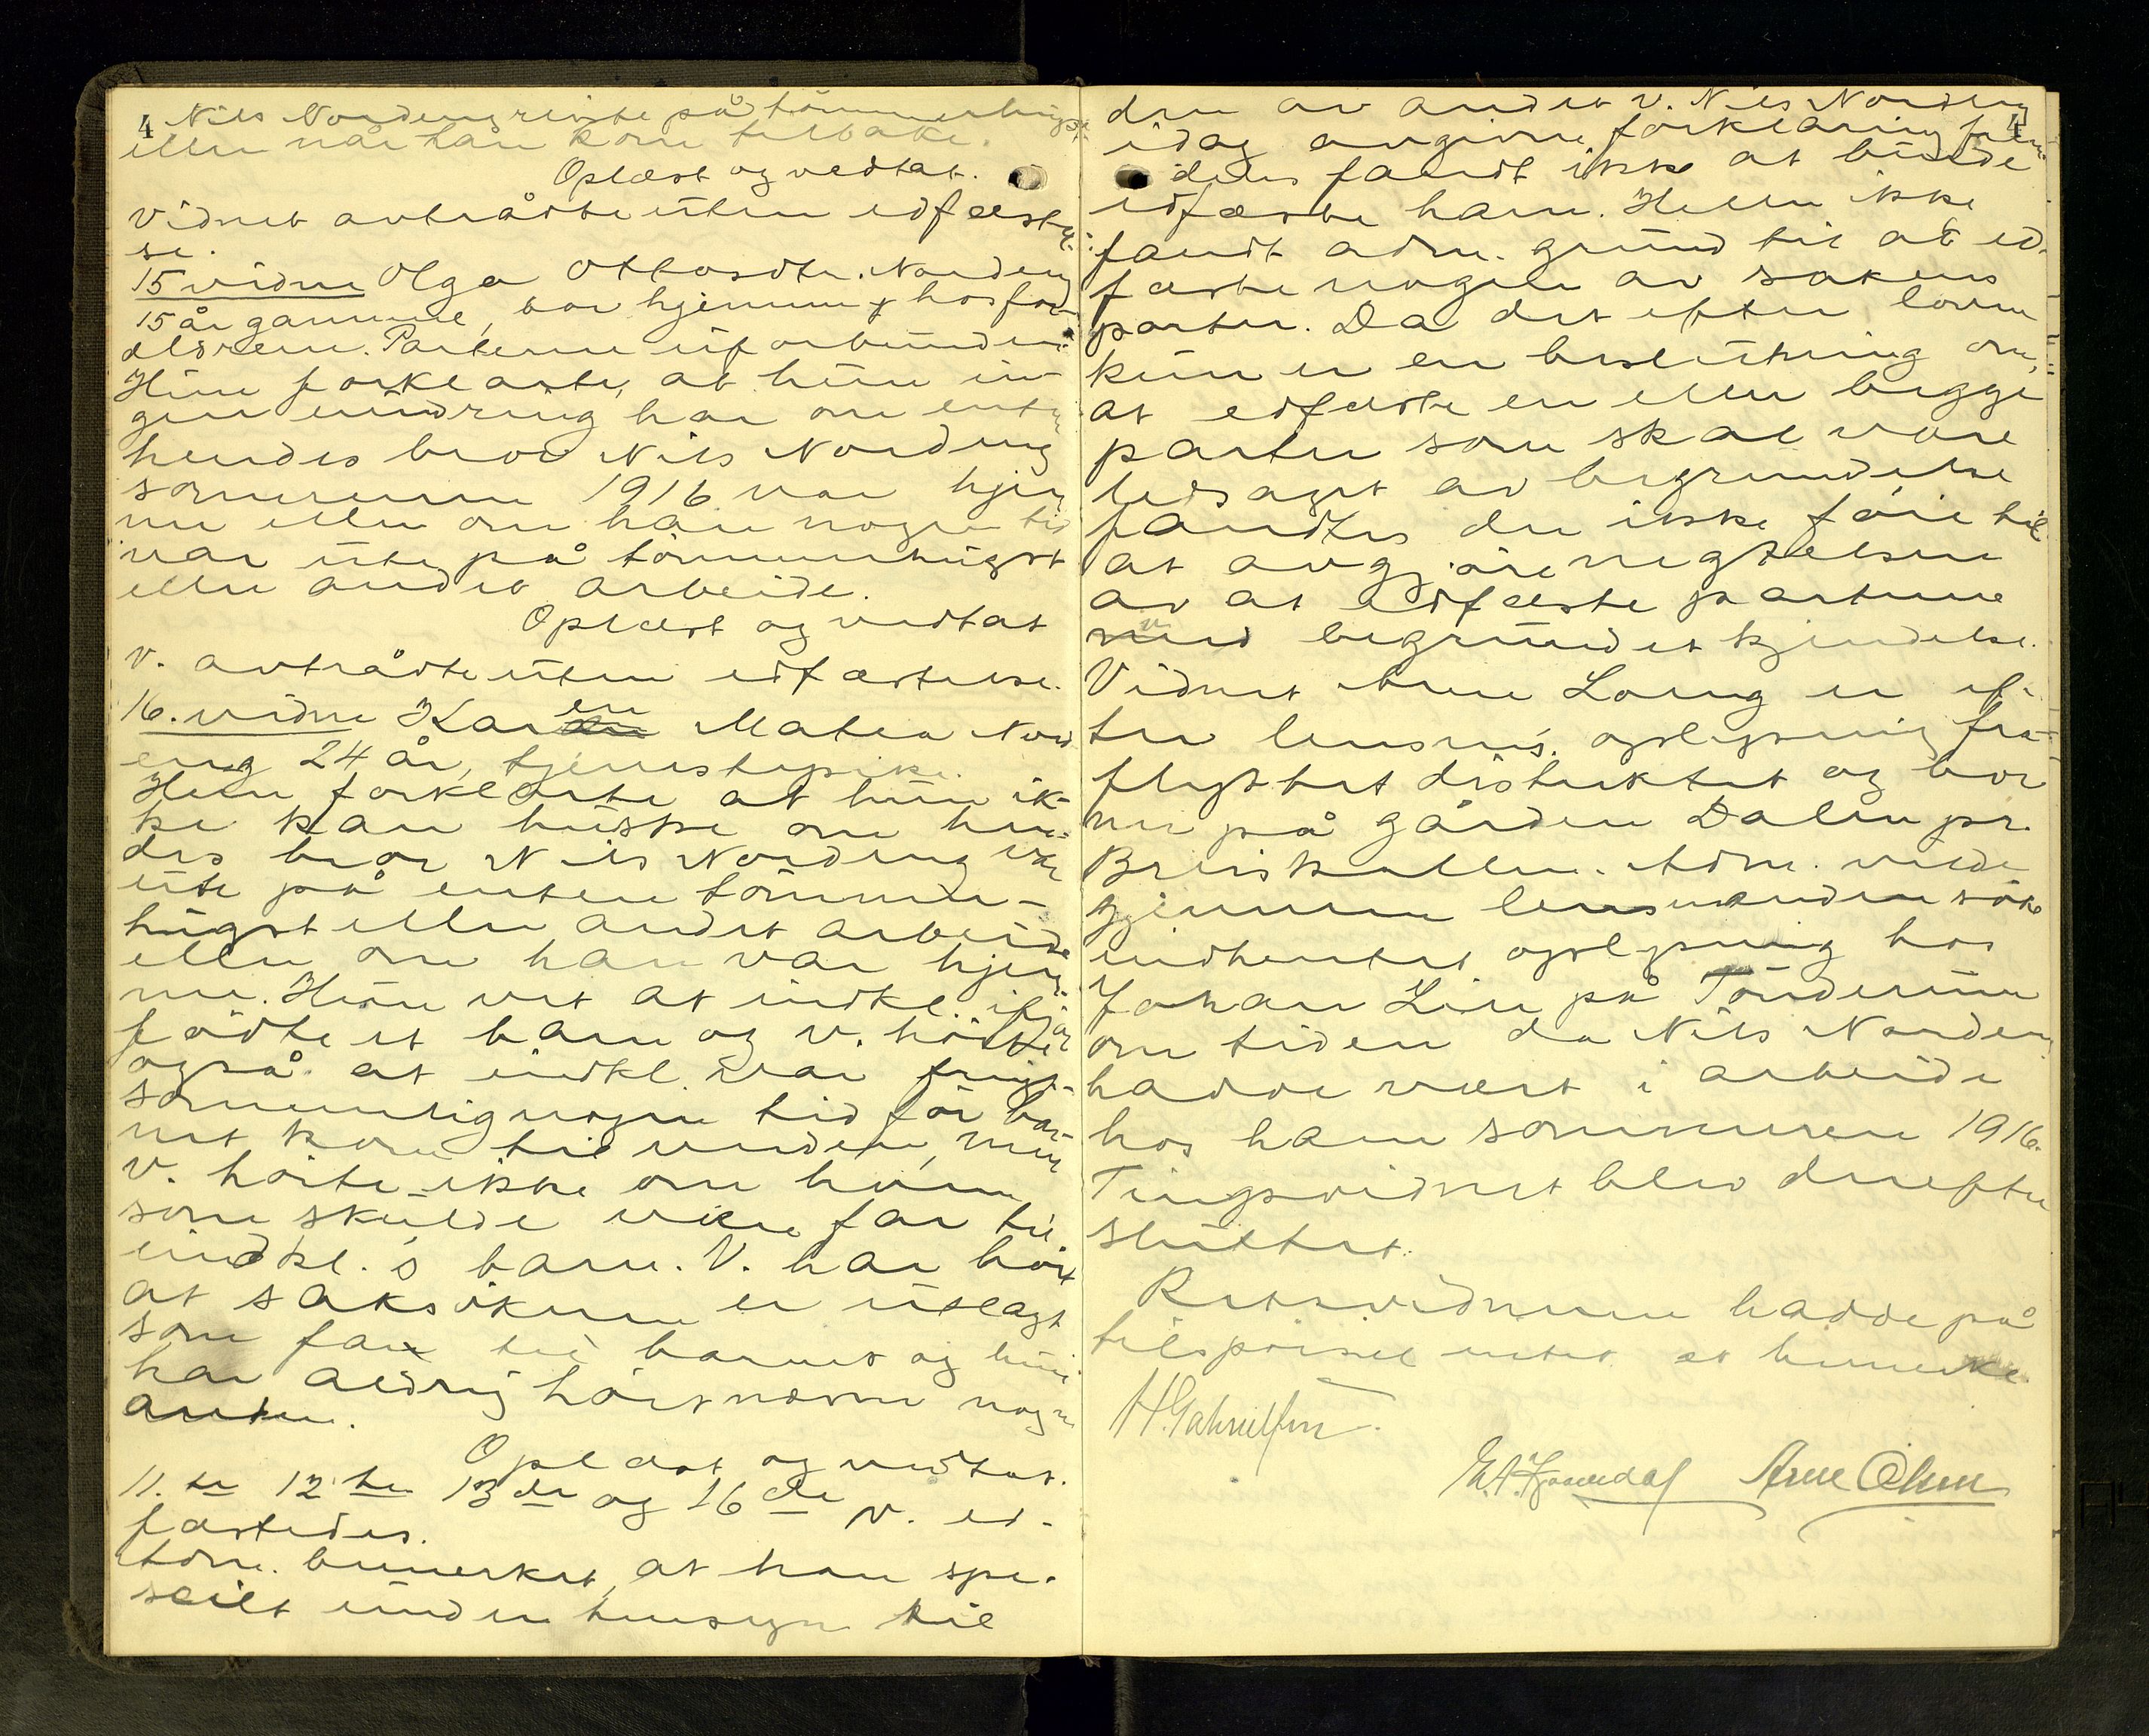 4
Nils Nordeng reiste på tömmerhugst
eller når han kom tilbake.
Oplæst og vedtat.
Vidnet avtrådte uten edfæstel-
se.
15 vidne Olga Ottosdtr. Nordeng
15 år gammel, bor hjemme hos for-
ældrene. Parterne uforbunden.
Hun forklarte, at hun in-
gen erindring har om enten
hendes bror Nils Nordeng
sommeren 1916 var hjem
me eller om han nogen tid
var ute på tömmerhugst
eller andet arbeide.
Oplæst og vedtat
V. avtrådte uten edfæstelse.
16. vidne Karen Matea Nord
eng 24 år, tjenestepike.
Hun forklarte at hun ik-
ke kan huske om hen-
des bror Nils Nordeng var
ute på enten tömmer-
hugst eller andet arbeide
eller om han var hjem
me. Hun vet at indkl. ifjor
födte et barn og v. hörte
også at indkl. var frugt-
sommelig nogen tid för bar-
net kom til verden, men
V. hörte ikke om hvem
som skulde være far til
indkl.'s barn. V. har hört
at saksökeren er utlagt
som far til barnet og hun
har aldrig hört nævne nogen
anden.
Oplæst og vedtat.
11. te 12 te 13 de og 16 de V. ed-
fæstedes.
Adm. bemerket, at han spe-
cielt under hensyn til
4
den av andet v. Nils Nordeng
idag avgivne forklaring frem-
deles fandt ikke at burde
edfæste ham. Heller ikke
fandt adm. grund til at ed-
fæste nogen av sakens
parter. Da det efter loven
kun er en beslutning om,
at edfæste en eller begge
parter som skal være
ledsaget av begrundelse
fandtes der ikke föie til
at avgjöre negtelsen
av at edfæste parterne
ved begrundet kjendelse.
Vidnet Loeng er ef-
ter lensm's. oplysning fra-
flyttet distriktet og bor
nu på gården Dalen pr.
Breiskallen. Adm. vilde
gjennem lensmanden söke
indhentet oplysning hos
Johan Lien på Tönderum
om tiden da Nils Nordeng
hadde vært i arbeide
hos ham sommeren 1916.
Tingsvidnet blev derefter
sluttet.
Retsvidnerne hadde på
tilspörsel intet at bemerke.
H. Gabrielsen.
Arne Öhm